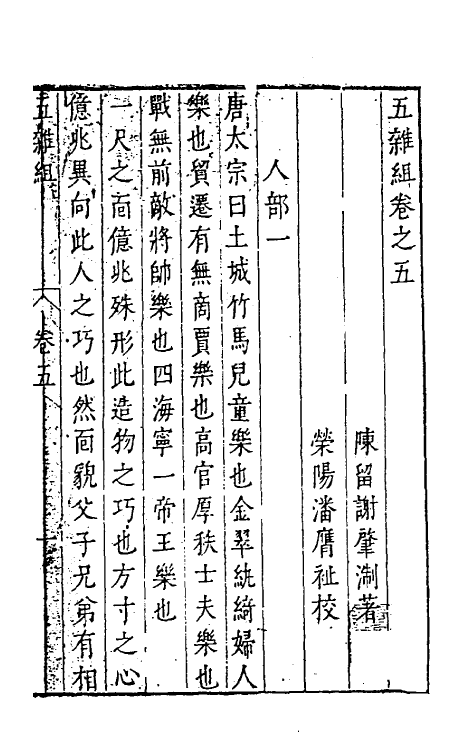 五雜組卷之五
陳留謝肇淛著
滎陽潘膺祉校
人部一
唐太宗曰土城竹馬兒童樂也金翠紈綺婦人
樂也貿遷有無商賈樂也高官厚秩士夫樂也
戰無前敵將帥樂也四海寧一帝王樂也
一尺之面億兆殊形此造物之巧也方寸之心
億兆異向此人之巧也然面貌父子兄弟有相
五雜組
卷五
一